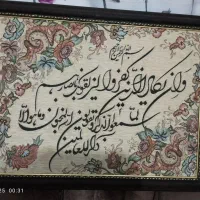 بسم الله الرحمن الرحیم
وان یکاد الذین کفروا لیزلقونک بابصارهم
لما سمعوا الذکر و یقولون انه لمجنون و ما هو الا
ذکر للعالمین
00:31